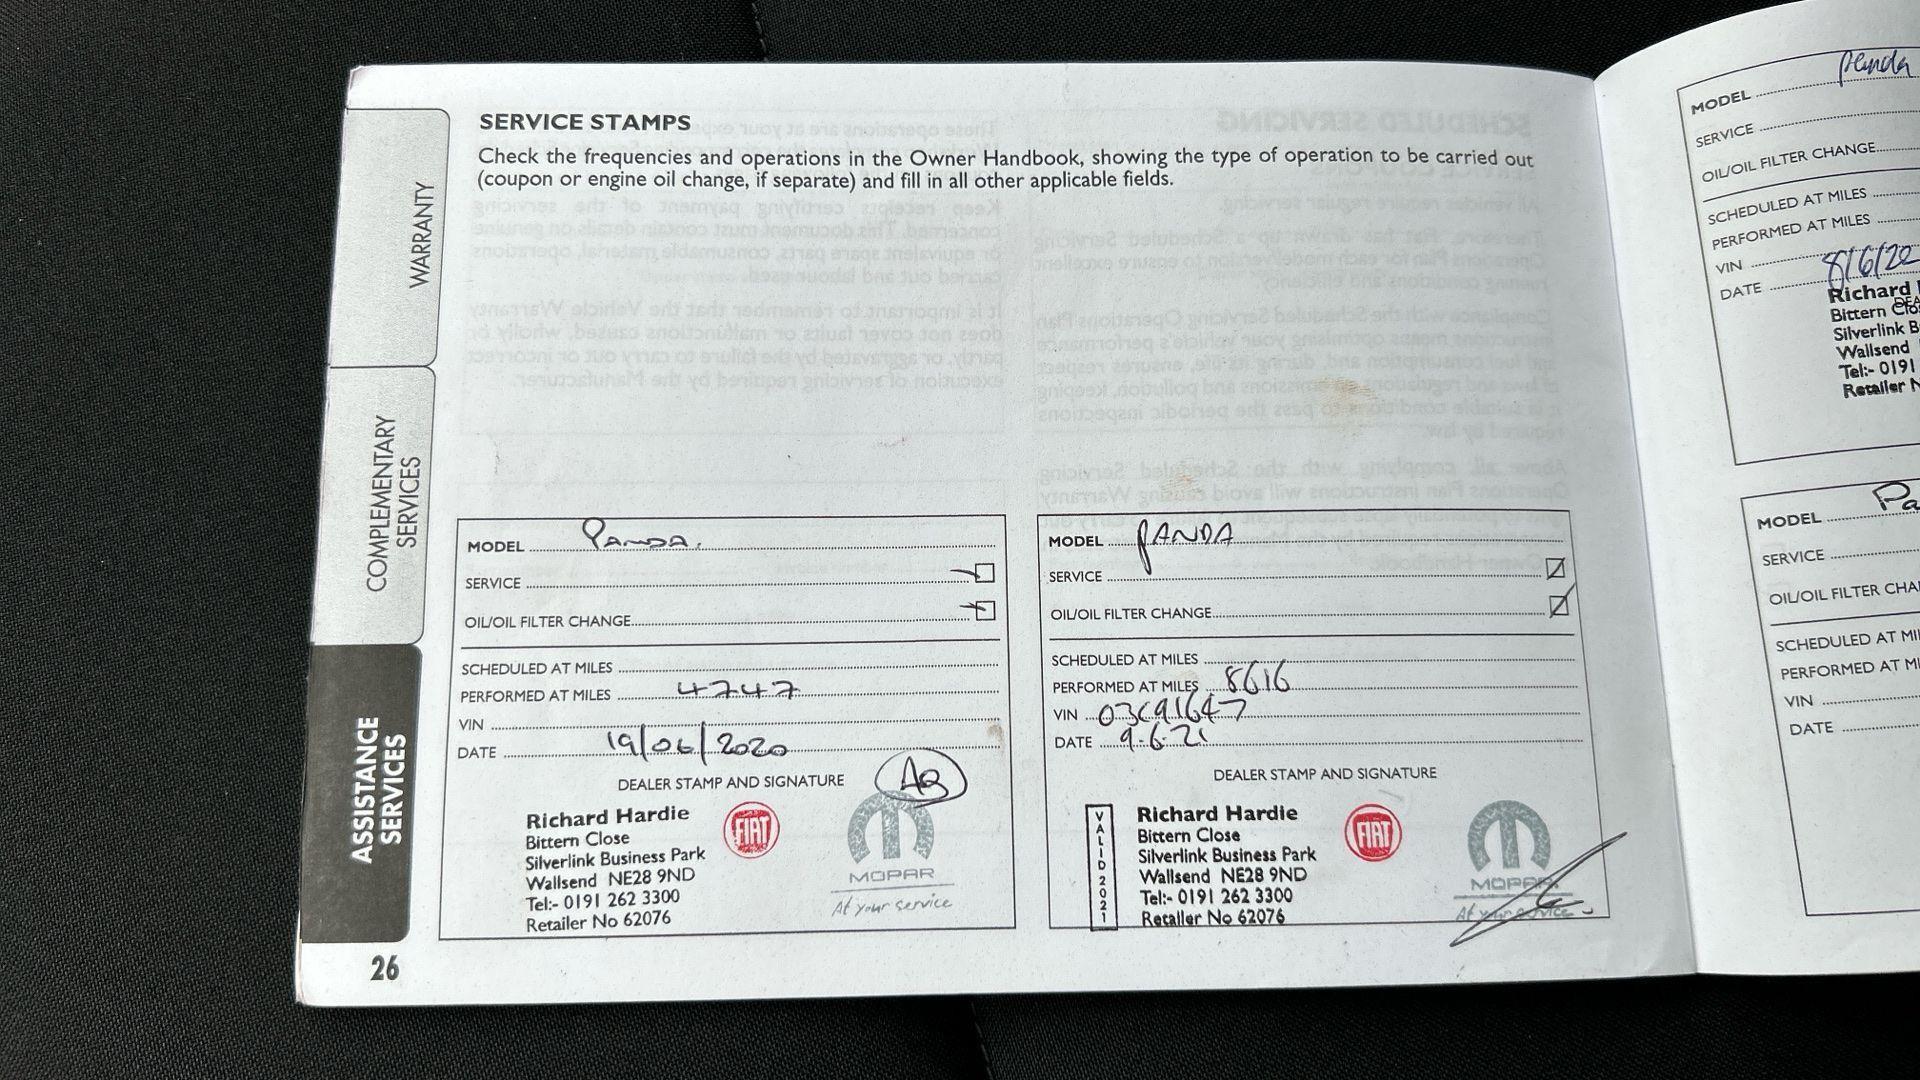 WARRANTY
COMPLEMENTARY
SERVICES
ASSISTANCE
SERVICES
26
SERVICE STAMPS
Check the frequencies and operations in the Owner Handbook, showing the type of operation to be carried out
(coupon or engine oil change, if separate) and fill in all other applicable fields.
MODEL PANDA.
SERVICE
OIL/OIL FILTER CHANGE
SCHEDULED AT MILES
PERFORMED AT MILES 4747
VIN
DATE 19/06/2020
DEALER STAMP AND SIGNATURE
AB
Richard Hardie
Bittern Close
Silverlink Business Park
Wallsend NE28 9ND
Tel:- 0191 262 3300
Retailer No 62076
FIAT
MOPAR
At your service
MODEL PANDA
SERVICE
OIL/OIL FILTER CHANGE
SCHEDULED AT MILES
PERFORMED AT MILES 8616
VIN 03C91647
DATE 9.6.21
DEALER STAMP AND SIGNATURE
VALID 2021
Richard Hardie
Bittern Close
Silverlink Business Park
Wallsend NE28 9ND
Tel:- 0191 262 3300
Retailer No 62076
FIAT
MOPAR
At your service
MODEL Panda
SERVICE
OIL/OIL FILTER CHANGE
SCHEDULED AT MILES
PERFORMED AT MILES
VIN
DATE 8/6/22
Richard
Bittern Clo
Silverlink B
Wallsend
Tel:- 0191
Retailer N
MODEL Pa
SERVICE
OIL/OIL FILTER CHA
SCHEDULED AT MI
PERFORMED AT MI
VIN
DATE